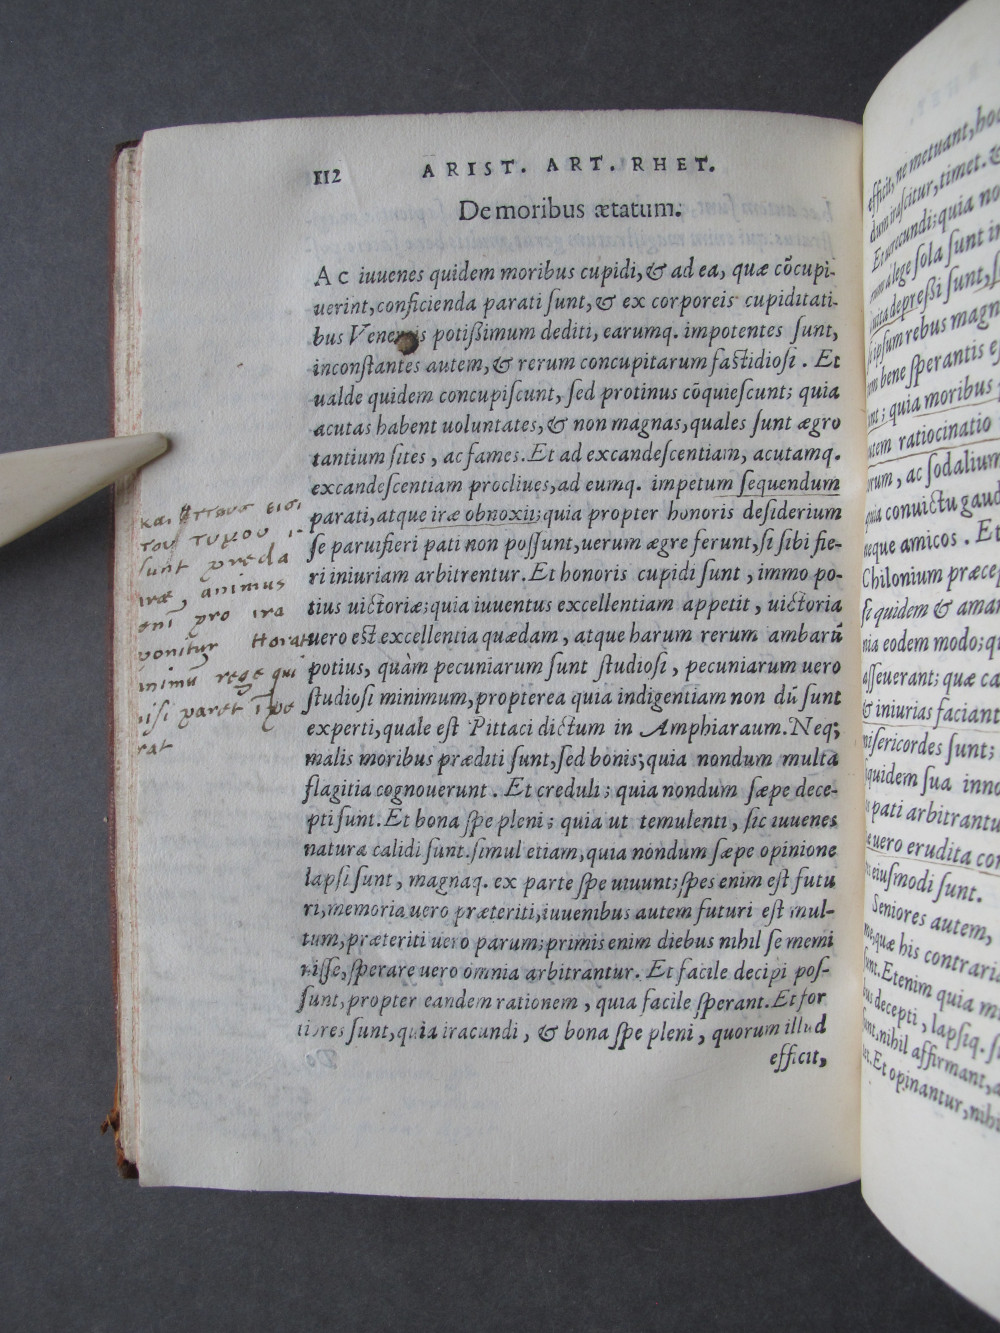 112 ARIST. ART. RHET.
De moribus ætatum.
Ac iuuenes quidem moribus cupidi, & ad ea, quæ cõcupi-
uerint, conficienda parati sunt, & ex corporeis cupiditati-
bus Venereis potißimum dediti, earumq. impotentes sunt,
inconstantes autem, & rerum concupitarum fastidiosi. Et
ualde quidem concupiscunt, sed protinus cõquiescunt; quia
acutas habent uoluntates, & non magnas, quales sunt ægro
tantium sites, ac fames. Et ad excandescentiam, acutamq.
excandescentiam procliues, ad eumq. impetum sequendum
parati, atque iræ obnoxii; quia propter honoris desiderium
se paruifieri pati non possunt, uerum ægre ferunt, si sibi fie-
ri iniuriam arbitrentur. Et honoris cupidi sunt, immo po-
tius uictoriæ; quia iuuentus excellentiam appetit, uictoria
uero est excellentia quædam, atque harum rerum ambarũ
potius, quàm pecuniarum sunt studiosi, pecuniarum uero
studiosi minimum, propterea quia indigentiam non dũ sunt
experti, quale est Pittaci dictum in Amphiaraum. Neq;
malis moribus præditi sunt, sed bonis; quia nondum multa
flagitia cognouerunt. Et creduli; quia nondum sæpe dece-
pti sunt. Et bona spe pleni; quia ut temulenti, sic iuuenes
natura calidi sunt. simul etiam, quia nondum sæpe opinione
lapsi sunt, magnaq. ex parte spe uiuunt; spes enim est futu
ri, memoria uero præteriti, iuuenibus autem futuri est mul-
tum, præteriti uero parum; primis enim diebus nihil se memi
nisse, sperare uero omnia arbitrantur. Et facile decipi pos-
sunt, propter eandem rationem, quia facile sperant. Et for
tiores sunt, quia iracundi, & bona spe pleni, quorum illud
efficit,
και ηττους εισι
του
sunt præda
iræ, animus
enĩ pro ira
ponitur Horat
animũ rege qui
nisi paret ĩpe
rat
efficit, ne metuant, hoc
dum irascitur, timet. &
Et uerecundi; quia no
lege sola sunt in
uita depreßi sunt,
ipsum rebus magn
bene sperantis e
quia moribus
autem ratiocinatio
orum, ac sodalium
quia conuictu gaud
neque amicos. Et
Chilonium præcep
se quidem & amar
nia eodem modo; qu
asseuerant; quæ ca
& iniurias faciant
misericordes sunt;
siquidem sua inno
pati arbitrantu
uero erudita con
eiusmodi sunt.
Seniores autem,
quæ his contraria
sunt. Etenim quia
bus decepti, lapsiq.
sunt, nihil affirmant,
Et opinantur, nihi